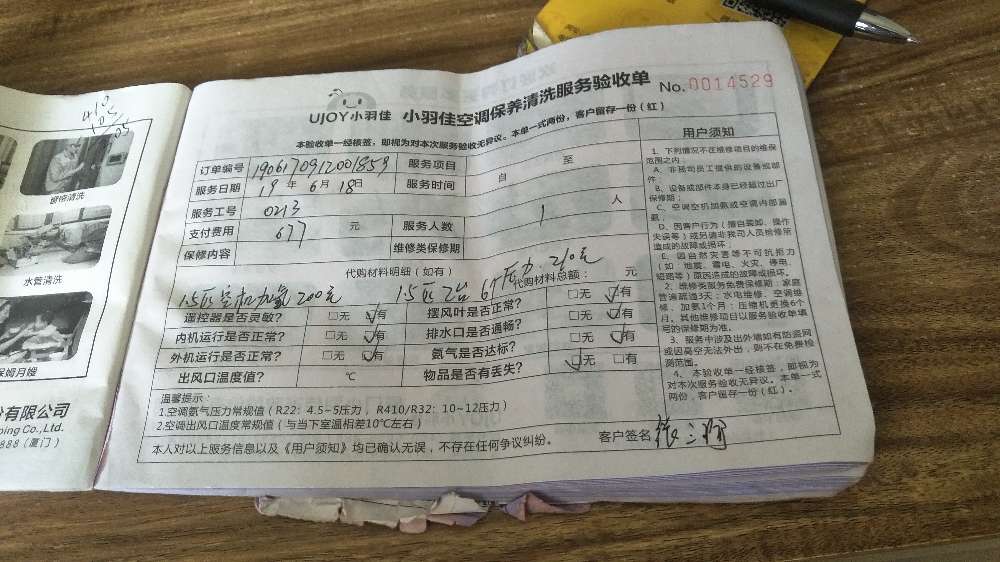 管道清洗
水管清洗
保姆月嫂
份有限公司
ping Co.,Ltd.
888（厦门）
UJOY小羽佳 小羽佳空调保养清洗服务验收单 No.0014529
本验收单一经核签，即视为对本次服务验收无异议。本单一式两份，客户留存一份（红）
订单编号 1906170912001859 服务项目
服务日期 19年6月18日 服务时间 自 至
服务工号 0213 服务人数 1 人
支付费用 677 元 维修类保修期
保修内容
代购材料明细（如有）
1.5匹空机加氨200元 1.5匹2台 6个压力. 210元
代购材料总额： 元
遥控器是否灵敏？ □无 □有 摆风叶是否正常？ □无 □有
内机运行是否正常？ □无 □有 排水口是否通畅？ □无 □有
外机运行是否正常？ □无 □有 氨气是否达标？ □无 □有
出风口温度值？ ℃ 物品是否有丢失？ □无 □有
温馨提示：
1.空调氨气压力常规值（R22：4.5~5压力，R410/R32：10~12压力）
2.空调出风口温度常规值（与当下室温相差10℃左右）
本人对以上服务信息以及《用户须知》均已确认无误，不存在任何争议纠纷。
客户签名
用户须知
1、下列情况不在维修项目的维保
范围之内：
A、非我司员工提供的设备或部
件；
B、设备或部件本身已经超过出厂
保修期；
C、空调空机加氨或空调内部漏
氨；
D、因客户行为（擅自装卸、操作
失误等）或另请非我司人员检修所
造成的故障或损坏；
E、因自然灾害等不可抗拒力
（如：地震、雷电、火灾、停电、
短路等）原因造成的故障或损坏。
2、维修类服务免费保修期：家庭
管道疏通3天；水电维修、空调维
修、加氨1个月；压缩机更换6个
月。其他维修项目以服务验收单填
写的保修期为准。
3、服务中涉及出外墙如有防盗网
或因高空无法外出，则不在免费检
测范围。
4、本验收单一经核签，即视为
对本次服务验收无异议。本单一式
两份，客户留存一份（红）。